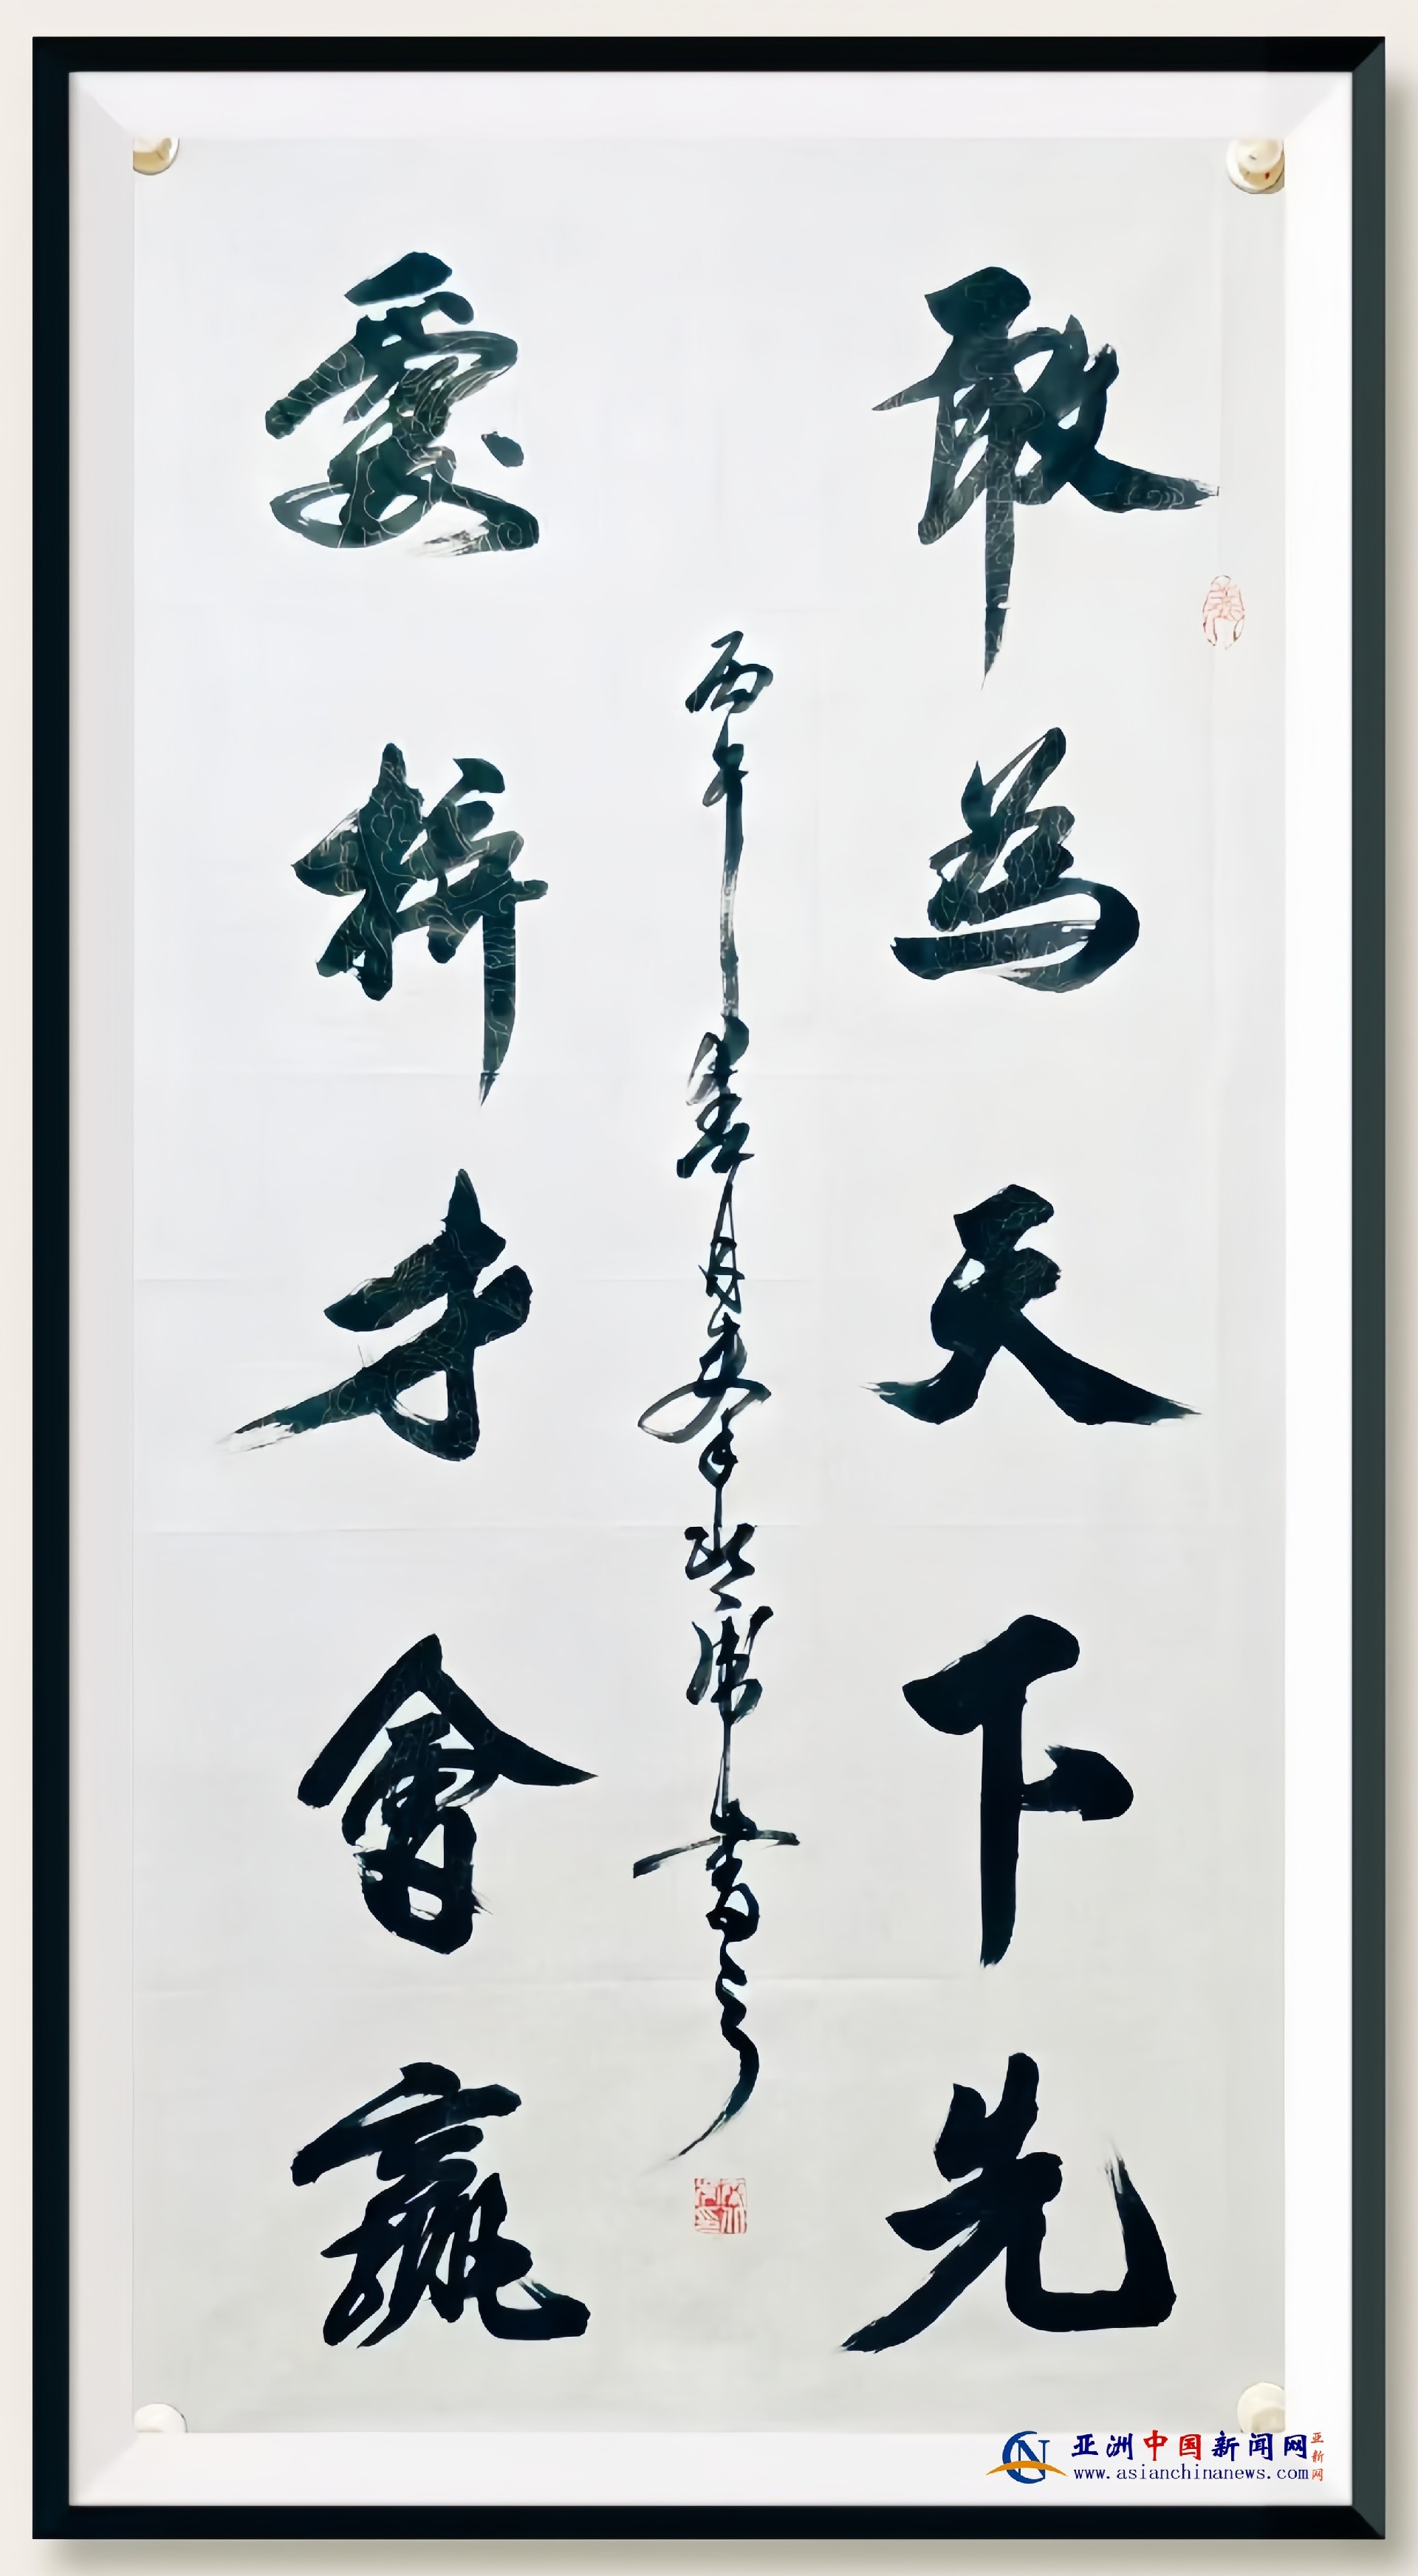 敢為天下先
愛拚才會贏
丙午年
月
書之
亚洲中国新闻网
亚新网
www.asianchinanews.com